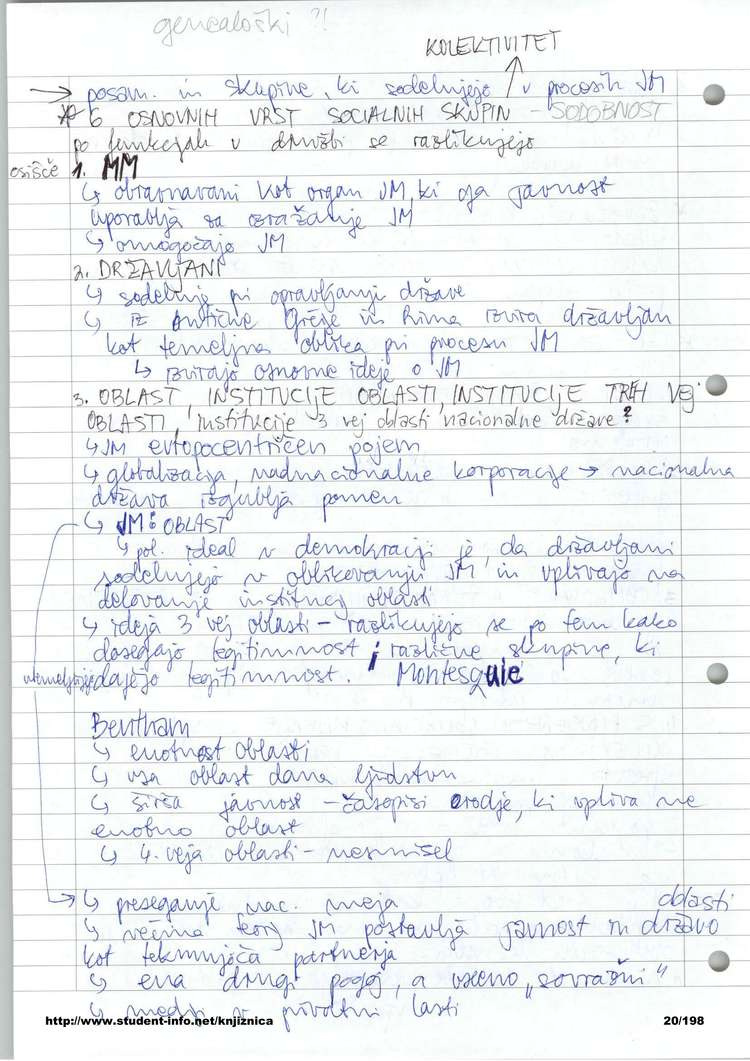 genealoški ?!
KOLEKTIVITET
→ posam. in skupine, ki sodelujejo v procesih JM
* 6 OSNOVNIH VRST SOCIALNIH SKUPIN - SODOBNOST
po funkcijah v družbi se razlikujejo
osišče 1. MM
↳ obravnavani kot organ JM, ki ga javnost
uporablja za izražanje JM
↳ omogočajo JM
2. DRŽAVLJANI
↳ sodeluje pri opravljanji države
↳ iz Antične Grčije in Rima izvira državljan
kot temeljna oblika pri procesu JM
↳ izvirajo osnovne ideje o JM
3. OBLAST, INSTITUCIJE OBLASTI, INSTITUCIJE TREH VEJ
OBLASTI, institucije 3 vej oblasti nacionalne države?
↳ JM evropocentričen pojem
↳ globalizacija, nadnacionalne korporacije → nacionalna
država izgublja pomen
↳ JM : OBLAST
↳ pol. ideal v demokraciji je, da državljani
sodelujejo v oblikovanju JM in vplivajo na
delovanje institucij oblasti
↳ ideja 3 vej oblasti - razlikujejo se po tem kako
dosegajo legitimnost i različne skupine, ki
utemeljitelj dajejo legitimnost. Montesquie
Bentham
↳ enotnost oblasti
↳ vsa oblast dana ljudstvu
↳ širša javnost - časopisi orodje, ki vpliva na
enotno oblast
↳ 4. veja oblasti - nesmisel
↳ preseganje nac. meja
oblasti
↳ večina teorij JM postavlja javnost in državo
kot tekmujoča partnerja
↳ ena drugi pogoj, a vseeno „sovražni“
↳ mediji v privatni lasti
http://www.student-info.net/knjiznica
20/198